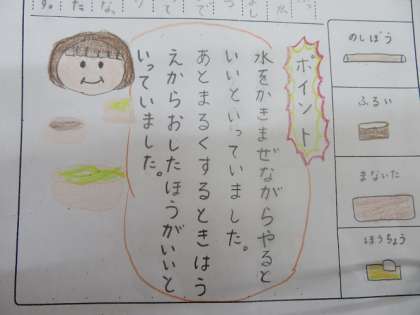 のしぼう
ふるい
まないた
ほうちょう
ポイント
水をかきまぜながらやると
いいといっていました。
あとまるくするときはう
えからおしたほうがいいと
いっていました。